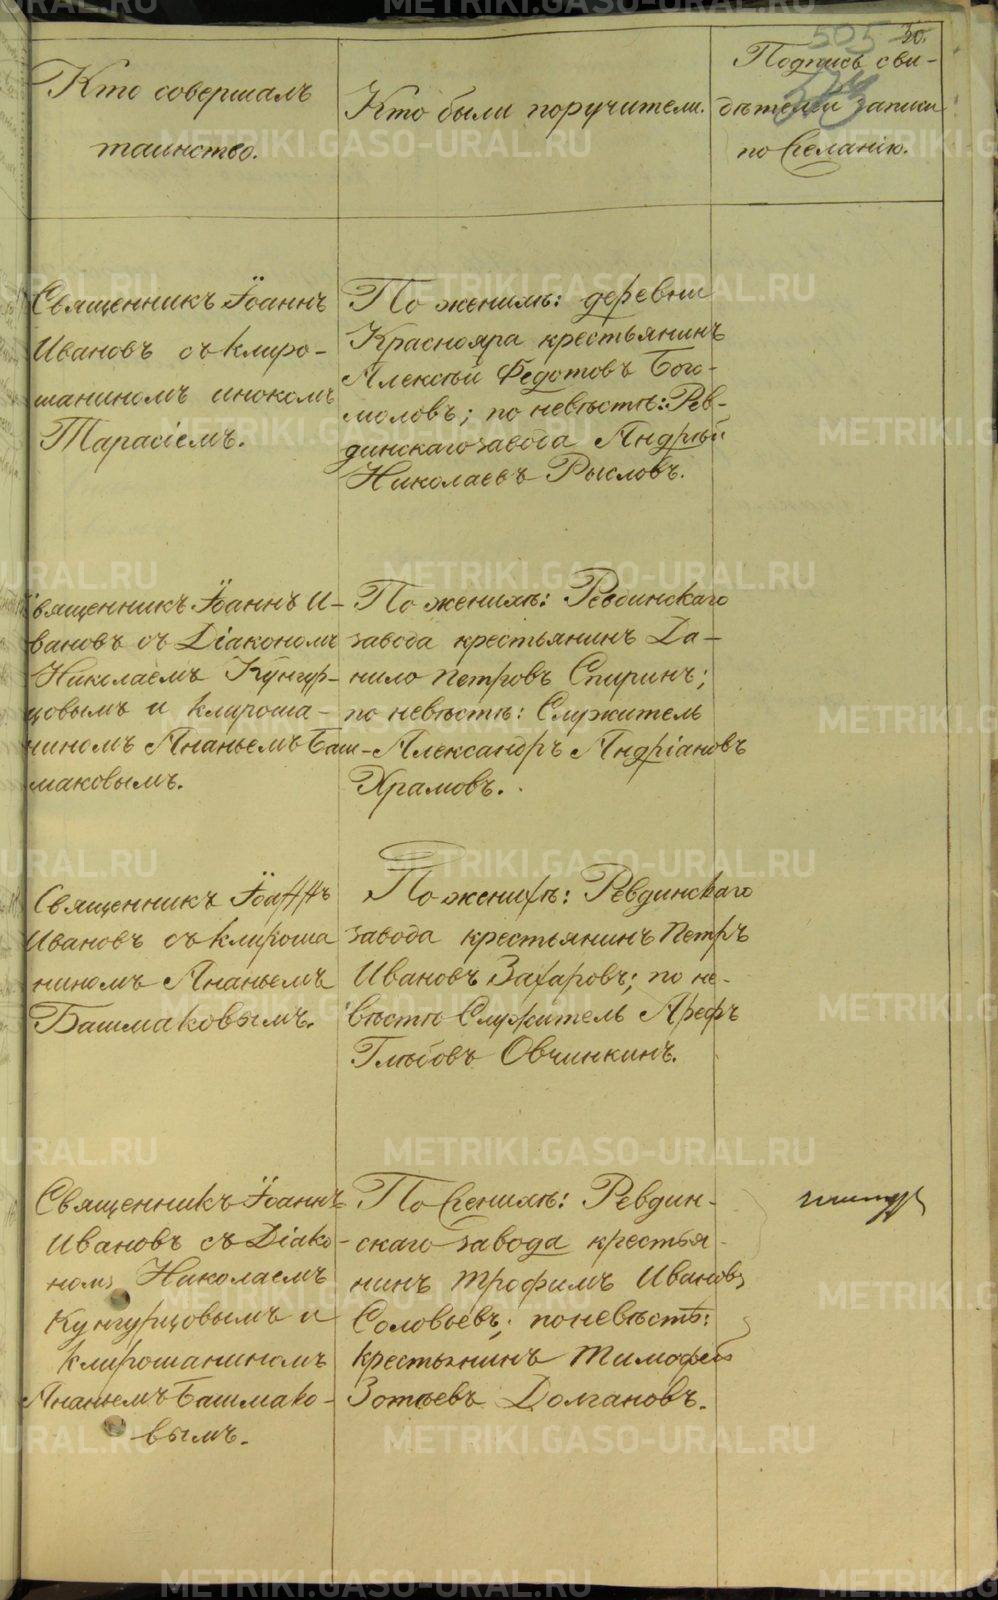 505 30.
Кто совершалъ
таинство.
Кто были поручители.
Подпись сви-
дѣтелей записи
по желанію.
Священникъ Іоаннъ
Ивановъ съ клиро-
шаниномъ инокомъ
Тарасіемъ.
По женихѣ: деревни
Краснояра крестьянинъ
Алексѣй Федотовъ Бого-
моловъ; по невѣстѣ: Рев-
динскаго завода Андрей
Николаевъ Рысловъ.
Священникъ Іоаннъ И-
вановъ съ Діакономъ
Николаемъ Кунгур-
цовымъ и клироша-
ниномъ Ананьемъ Баш-
маковымъ.
По женихѣ: Ревдинскаго
завода крестьянинъ Да-
нило Петровъ Спиринъ;
по невѣстѣ: Служитель
Александръ Андріановъ
Храмовъ.
Священникъ Іоаннъ
Ивановъ съ клироша
ниномъ Ананьемъ
Башмаковымъ.
По женихѣ: Ревдинскаго
завода крестьянинъ Петръ
Ивановъ Захаровъ; по не-
вѣстѣ Служитель Арефъ
Глѣбовъ Овчинкинъ.
Священникъ Іоаннъ
Ивановъ съ Діако-
номъ Николаемъ
Кунгурцовымъ и
клирошаниномъ
Ананьемъ Башмако-
вымъ.
По женихѣ: Ревдин-
скаго завода крестья-
нинъ Трофимъ Ивановъ
Соловьевъ; по невѣстѣ:
крестьянинъ Тимофей
Зотѣевъ Долгановъ.
METRIKI.GASO-URAL.RU